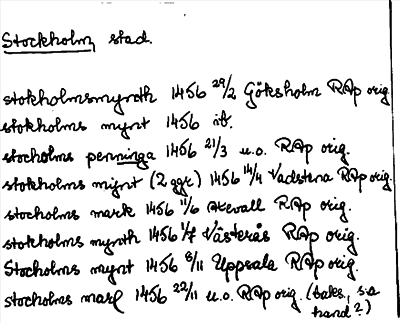 Stockholm, stad.
stokholmsmyndh 1456 29/2 Göksholm RAp orig
stokholms mynt 1456 ib.
stocholms penninga 1456 21/3 u.o. RAp orig.
stokholms mijnt (2 ggr) 1456 14/4 Vadstena RAp orig.
stocholms mark 1456 11/6 Axevall RAp orig.
stokholms mynth 1456 1/7 Västerås RAp orig.
Stocholms mynt 1456 8/11 Uppsala RAp orig.
stocholms mark 1456 22/11 u.o. RAp orig. (baks., s:a
hand?)